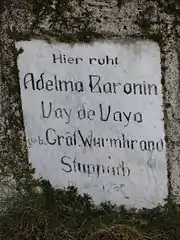 Hier ruht
Adelma Baronin
Vay de Vaya
geb. Gräf. Wurmbrand
Stuppach